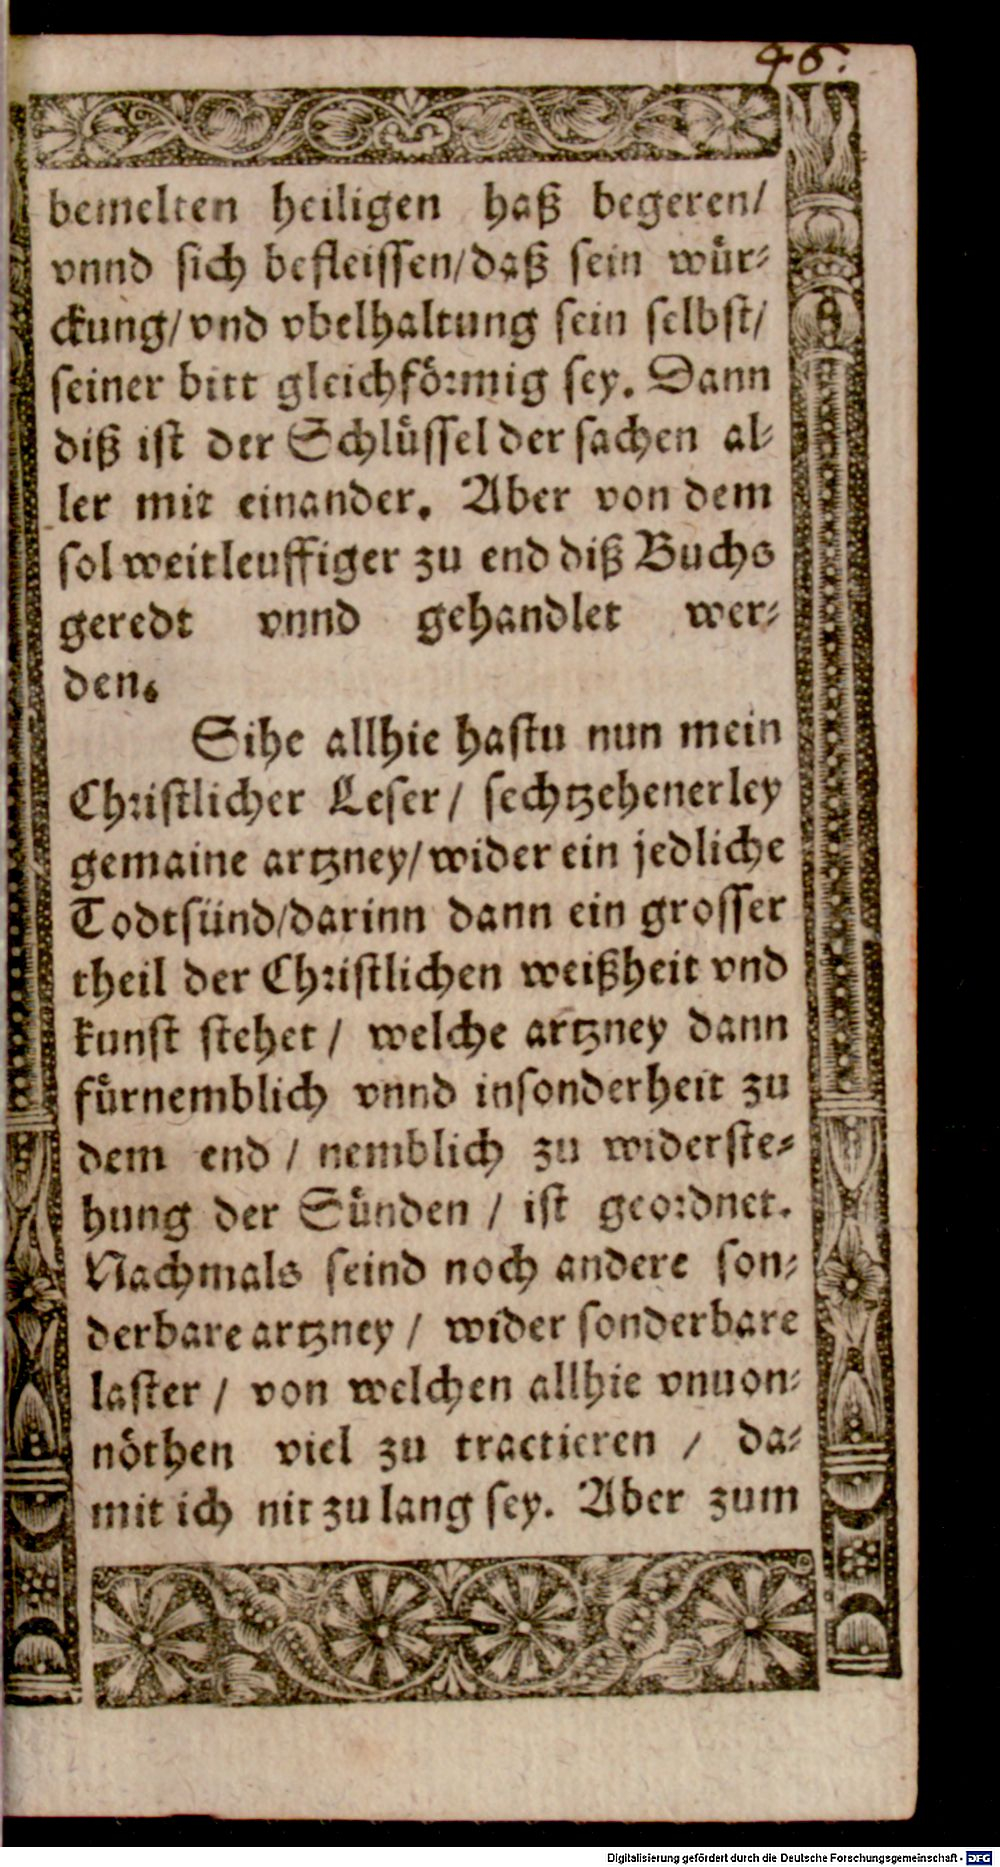 46.
bemelten heiligen haß begeren/
vnnd sich befleissen/daß sein wür-
ckung/vnd vbelhaltung sein selbst/
seiner bitt gleichförmig sey. Dann
diß ist der Schlüssel der sachen al-
ler mit einander. Aber von dem
sol weitleuffiger zu end diß Buchs
geredt vnnd gehandlet wer-
den.
Sihe allhie hastu nun mein
Christlicher Leser/ sechtzehenerley
gemaine artzney/wider ein jedliche
Todtsünd/darinn dann ein grosser
theil der Christlichen weißheit vnd
kunst stehet/ welche artzney dann
fürnemblich vnnd insonderheit zu
dem end/ nemblich zu widerste-
hung der Sünden/ ist geordnet.
Nachmals seind noch andere son-
derbare artzney/ wider sonderbare
laster/ von welchen allhie vnuon-
nöthen viel zu tractieren/ da-
mit ich nit zu lang sey. Aber zum
Digitalisierung gefördert durch die Deutsche Forschungsgemeinschaft - DFG